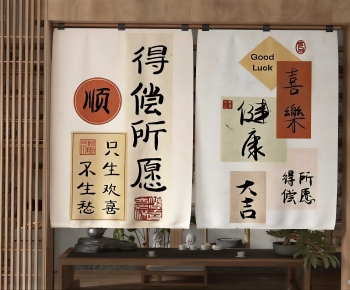 得偿所愿
顺
只生欢喜
不生愁
Good
Luck
喜樂
健康
大吉
所愿
得偿